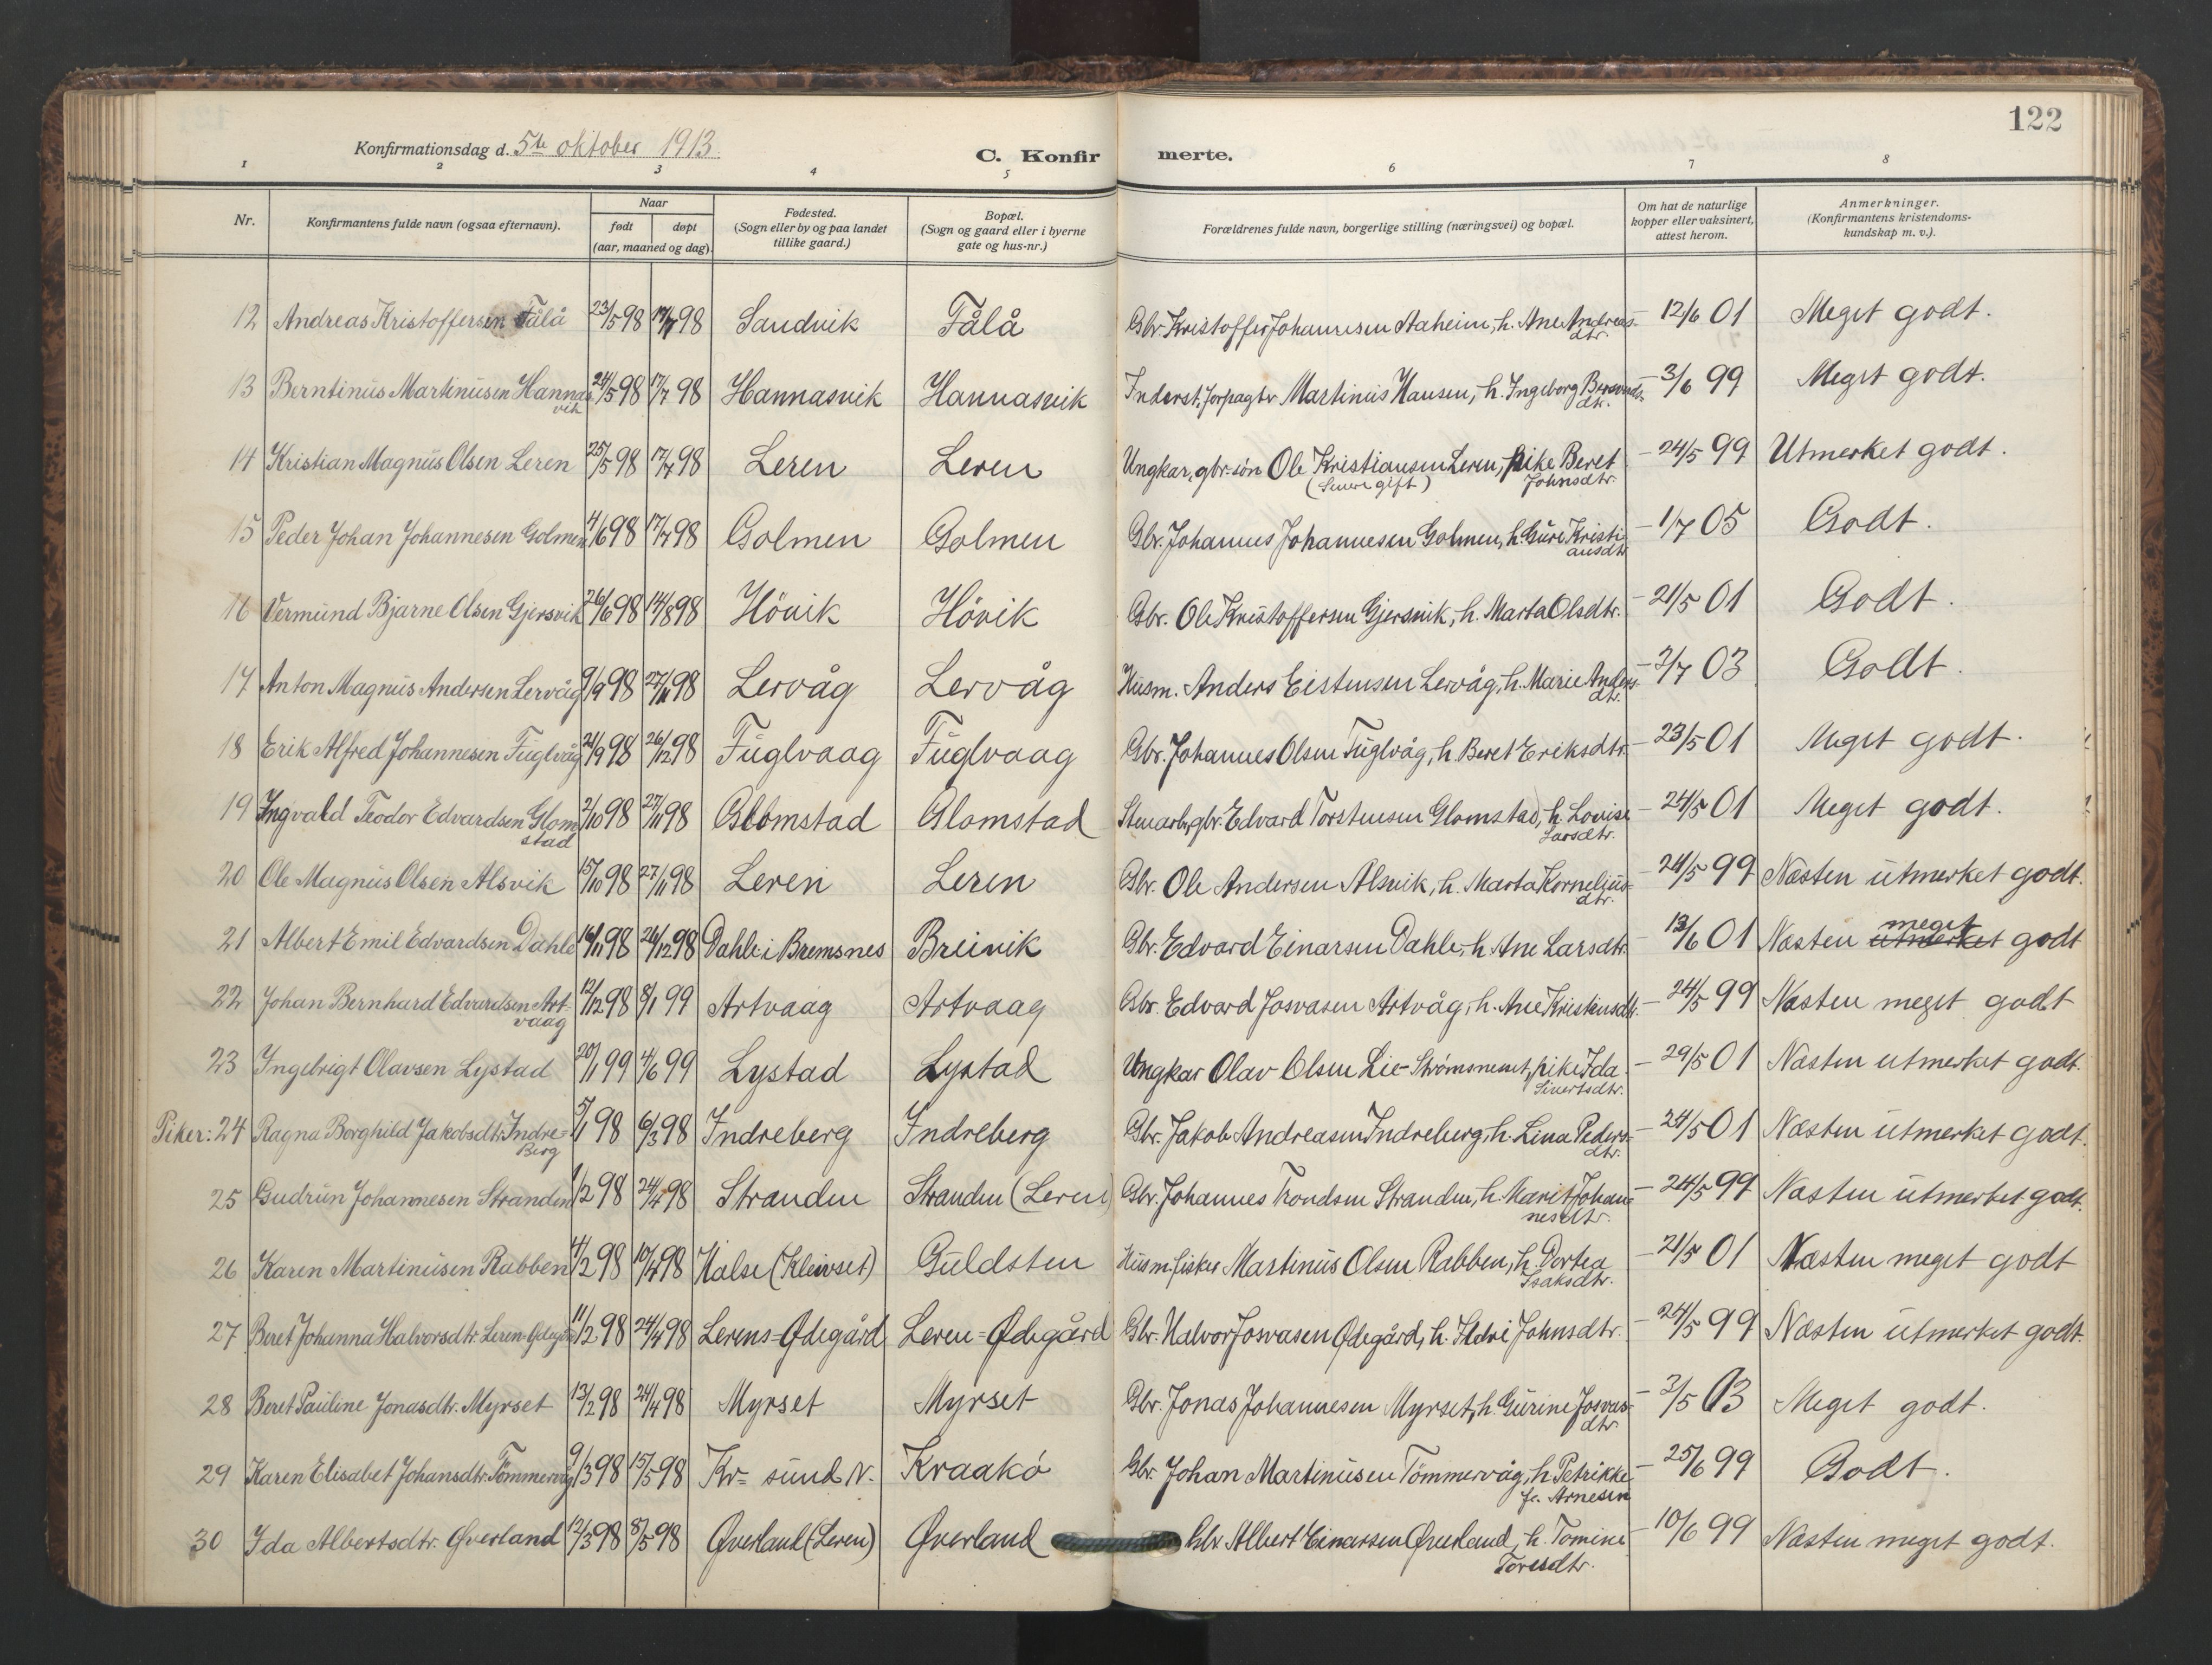 122
Konfirmationsdag d. 5te oktober 1913.
C. Konfir merte.
1 2 3 4 5 6 7 8
Nr. Konfirmantens fulde navn (ogsaa efternavn). Naar født døpt (aar, maaned og dag). Fødested. (Sogn eller by og paa landet tillike gaard.) Bopæl. (Sogn og gaard eller i byerne gate og hus-nr.) Forældrenes fulde navn, borgerlige stilling (næringsvei) og bopæl. Om hat de naturlige kopper eller vaksinert, attest herom. Anmerkninger. (Konfirmantens kristendoms- kundskap m. v.).
12 Andreas Kristoffersen Tålå 23/5 98 17/7 98 Sandvik Tålå Gbr. Kristoffer Johannesen Aaheim, h. Ane Andreas- dtr. – 12/6 01 Meget godt.
13 Berntinus Martinusen Hannas- vik 24/5 98 17/7 98 Hannasvik Hannasvik Inderst, forpagter Martinus Hansen, h. Ingeborg dtr. – 3/6 99 Meget godt.
14 Kristian Magnus Olsen Leren 25/5 98 17/7 98 Leren Leren Ungkar, gbr.søn Ole Kristiansen Leren, pike Beret (Senere gift) Johnsdtr. – 24/5 99 Utmerket godt.
15 Peder Johan Johannesen Golmen 4/6 98 17/7 98 Golmen Golmen Gbr. Johannes Johannesen Golmen, h. Guri Kristi- ansdtr. – 1/7 05 Godt.
16 Vermund Bjarne Olsen Gjersvik 26/6 98 14/8 98 Hövik Hövik Gbr. Ole Kristoffersen Gjersvik, h. Marta Olsdtr. – 21/5 01 Godt.
17 Anton Magnus Andersen Lervåg 9/9 98 27/11 98 Lervåg Lervåg Husm. Anders Eistensen Lervåg, h. Marie Anders- dtr. – 2/7 03 Godt.
18 Erik Alfred Johannesen Fuglvåg 21/9 98 26/12 98 Fuglvaag Fuglvaag Gbr. Johannes Olsen Fuglvåg, h. Beret Eriksdtr. – 23/5 01 Meget godt.
19 Ingvald Teodor Edvardsen Glom- stad 2/10 98 27/11 98 Glomstad Glomstad Stenarb., gbr. Edvard Torstensen Glomstad, h. Lovise Larsdtr. – 24/5 01 Meget godt.
20 Ole Magnus Olsen Alsvik 15/10 98 27/11 98 Leren Leren Gbr. Ole Andersen Alsvik, h. Marta Kornelius- dtr. – 24/5 99 Næsten utmerket godt.
21 Albert Emil Edvardsen Dahle 16/11 98 26/12 98 Dahle i Bremsnes Breivik Gbr. Edvard Einarsen Dahle, h. Ane Larsdtr. – 13/6 01 Næsten utmerket meget godt
22 Johan Bernhard Edvardsen Art- vaag 12/12 98 8/1 99 Artvaag Artvaag Gbr. Edvard Josvasen Artvåg, h. Ane Kristensdtr. – 24/5 99 Næsten meget godt
23 Ingebrigt Olavsen Lystad 20/1 99 4/6 99 Lystad Lystad Ungkar Olav Olsen Lie-Strømsneset, pike Ida Sivertsdtr. – 29/5 01 Næsten utmerket godt.
Piker: 24 Ragna Borghild Jakobsdtr. Indre- Berg 5/1 98 6/3 98 Indreberg Indreberg Gbr. Jakob Andreasen Indreberg, h. Lina Peders- dtr. – 24/5 01 Næsten utmerket godt.
25 Gudrun Johannesen Stranden 1/2 98 24/4 98 Stranden Stranden (Leren) Gbr. Johannes Trondsen Stranden, h. Marit Johan- nesdtr. – 24/5 99 Næsten utmerket godt.
26 Karen Martinusen Rabben 4/2 98 10/4 98 Halse (Kleivset) Guldsten Husm. fisker Martinus Olsen Rabben, h. Dortea Isaksdtr. – 21/5 01 Næsten meget godt
27 Beret Johanna Halvorsdtr. Leren-Ødegård 11/2 98 24/4 98 Lerens-Ødegård Leren-Ødegård Gbr. Halvor Josvasen Ødegård, h. Ildri Johnsdtr. – 24/5 99 Næsten utmerket godt.
28 Beret Pauline Jonasdtr. Myrset 13/2 98 24/4 98 Myrset Myrset Gbr. Jonas Johannesen Myrset, h. Gurine Josvas- dtr. – 3/5 13 Meget godt.
29 Karen Elisabet Johansdtr. Tömmervåg 9/3 98 15/5 98 Kr-sund N. Kraakö Gbr. Johan Martinusen Tömmervåg, h. Petrikke f. Arnesen – 25/6 99 Godt.
30 Ida Albertsdtr. Øverland 12/3 98 8/5 98 Øverland (Leren) Øverland Gbr. Albert Einarsen Øverland, h. Tomine Toresdtr. – 10/6 99 Næsten meget godt.